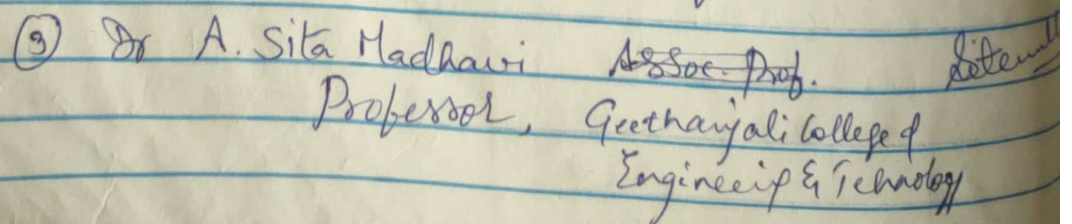 ③ Dr A. Sita Madhavi Assoc. Prof.
Professor, Geethanjali College of
Engineering & Technology